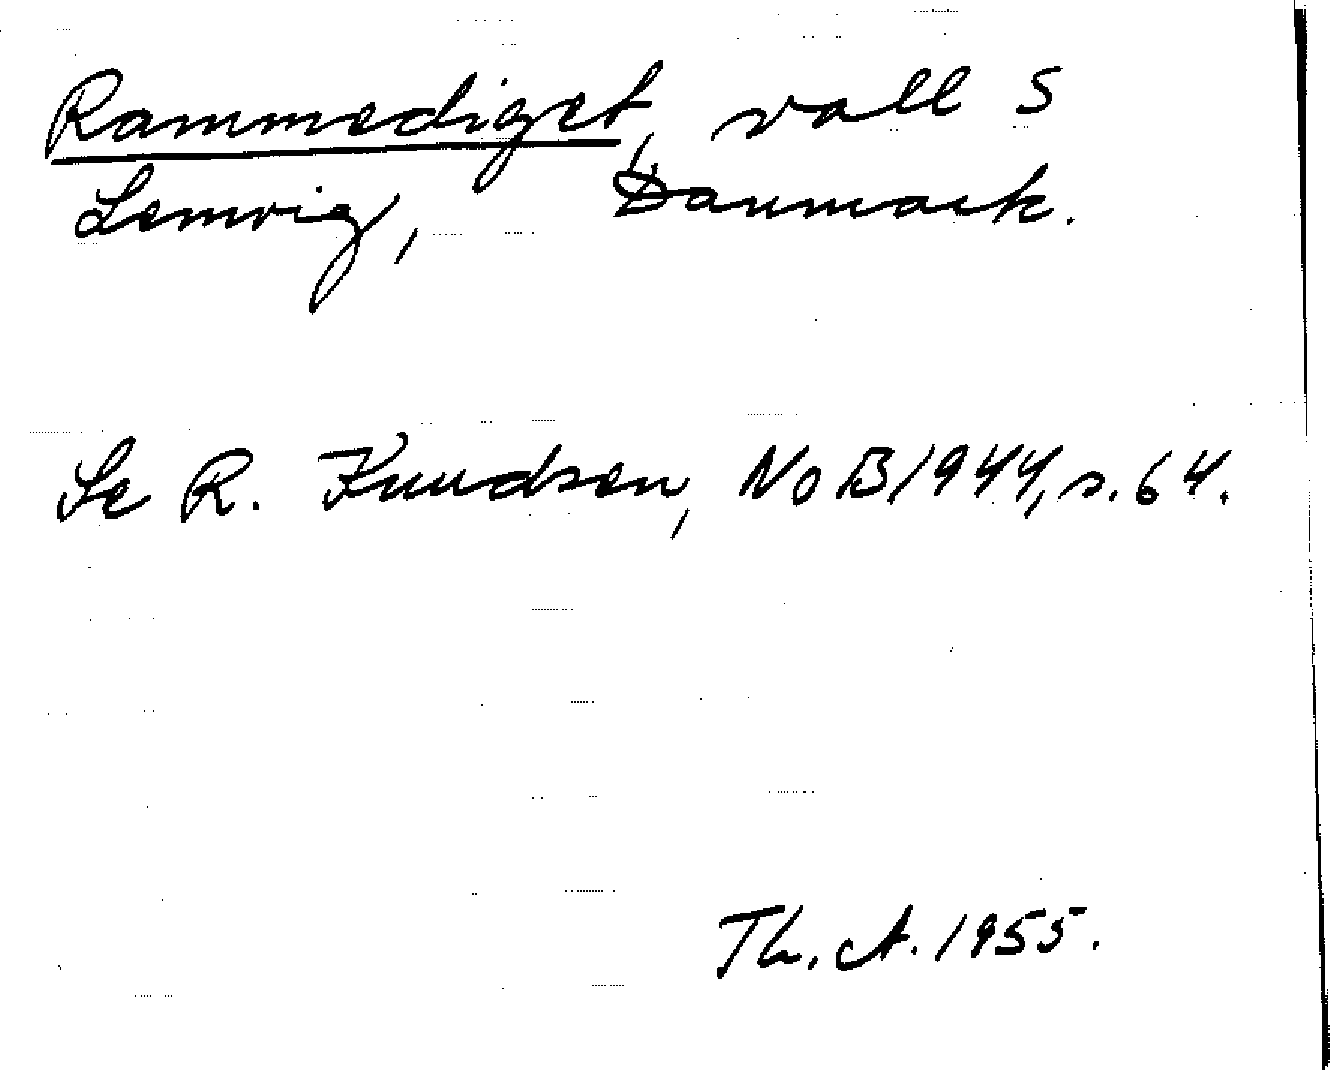 Rammediget, vall S
Lemvig, Danmark.
Se R. Knudsen, NoB 1944, s. 64.
Th. A. 1955.